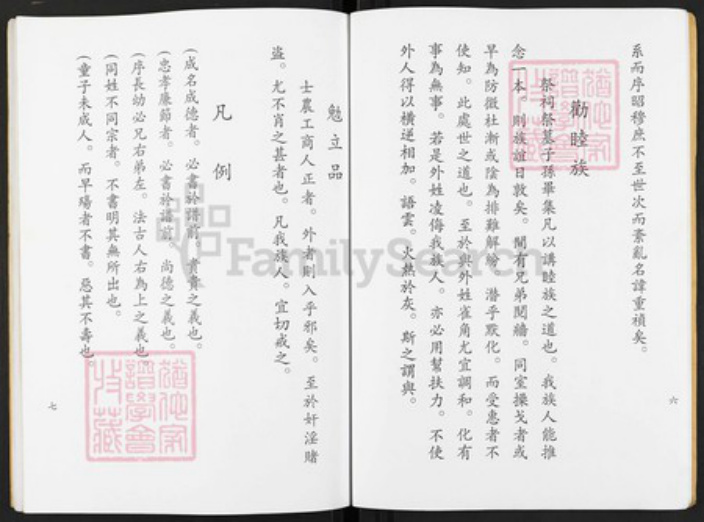 系而序昭穆庶不至世次而紊亂名諱重禎矣。
勸睦族
祭祠祭墓子孫畢集凡以講睦族之道也。我族人能推
念一本。則族誼日敦矣。間有兄弟鬩牆。同室操戈者或
早為防微杜漸或陰為排難解紛。潛乎默化。而受惠者不
使知。此處世之道也。至於與外姓雀角尤宜調和。化有
事為無事。若是外姓凌侮我族人。亦必用幫扶力。不使
外人得以橫逆相加。語雲。火熱於灰。斯之謂與。
六
勉立品
士農工商人正者。外者則入乎邪矣。至於奸淫賭
盜。尤不肖之甚者也。凡我族人。宜切戒之。
凡例
(成名成德者。必書於譜前。貴貴之義也。
(忠孝廉節者。必書於譜前。尚德之義也。
(序長幼必兄右弟左。法古人右為上之義也。
(同姓不同宗者。不書明其無所出也。
(童子未成人。而早殤者不書。惡其不壽也。
七
FamilySearch